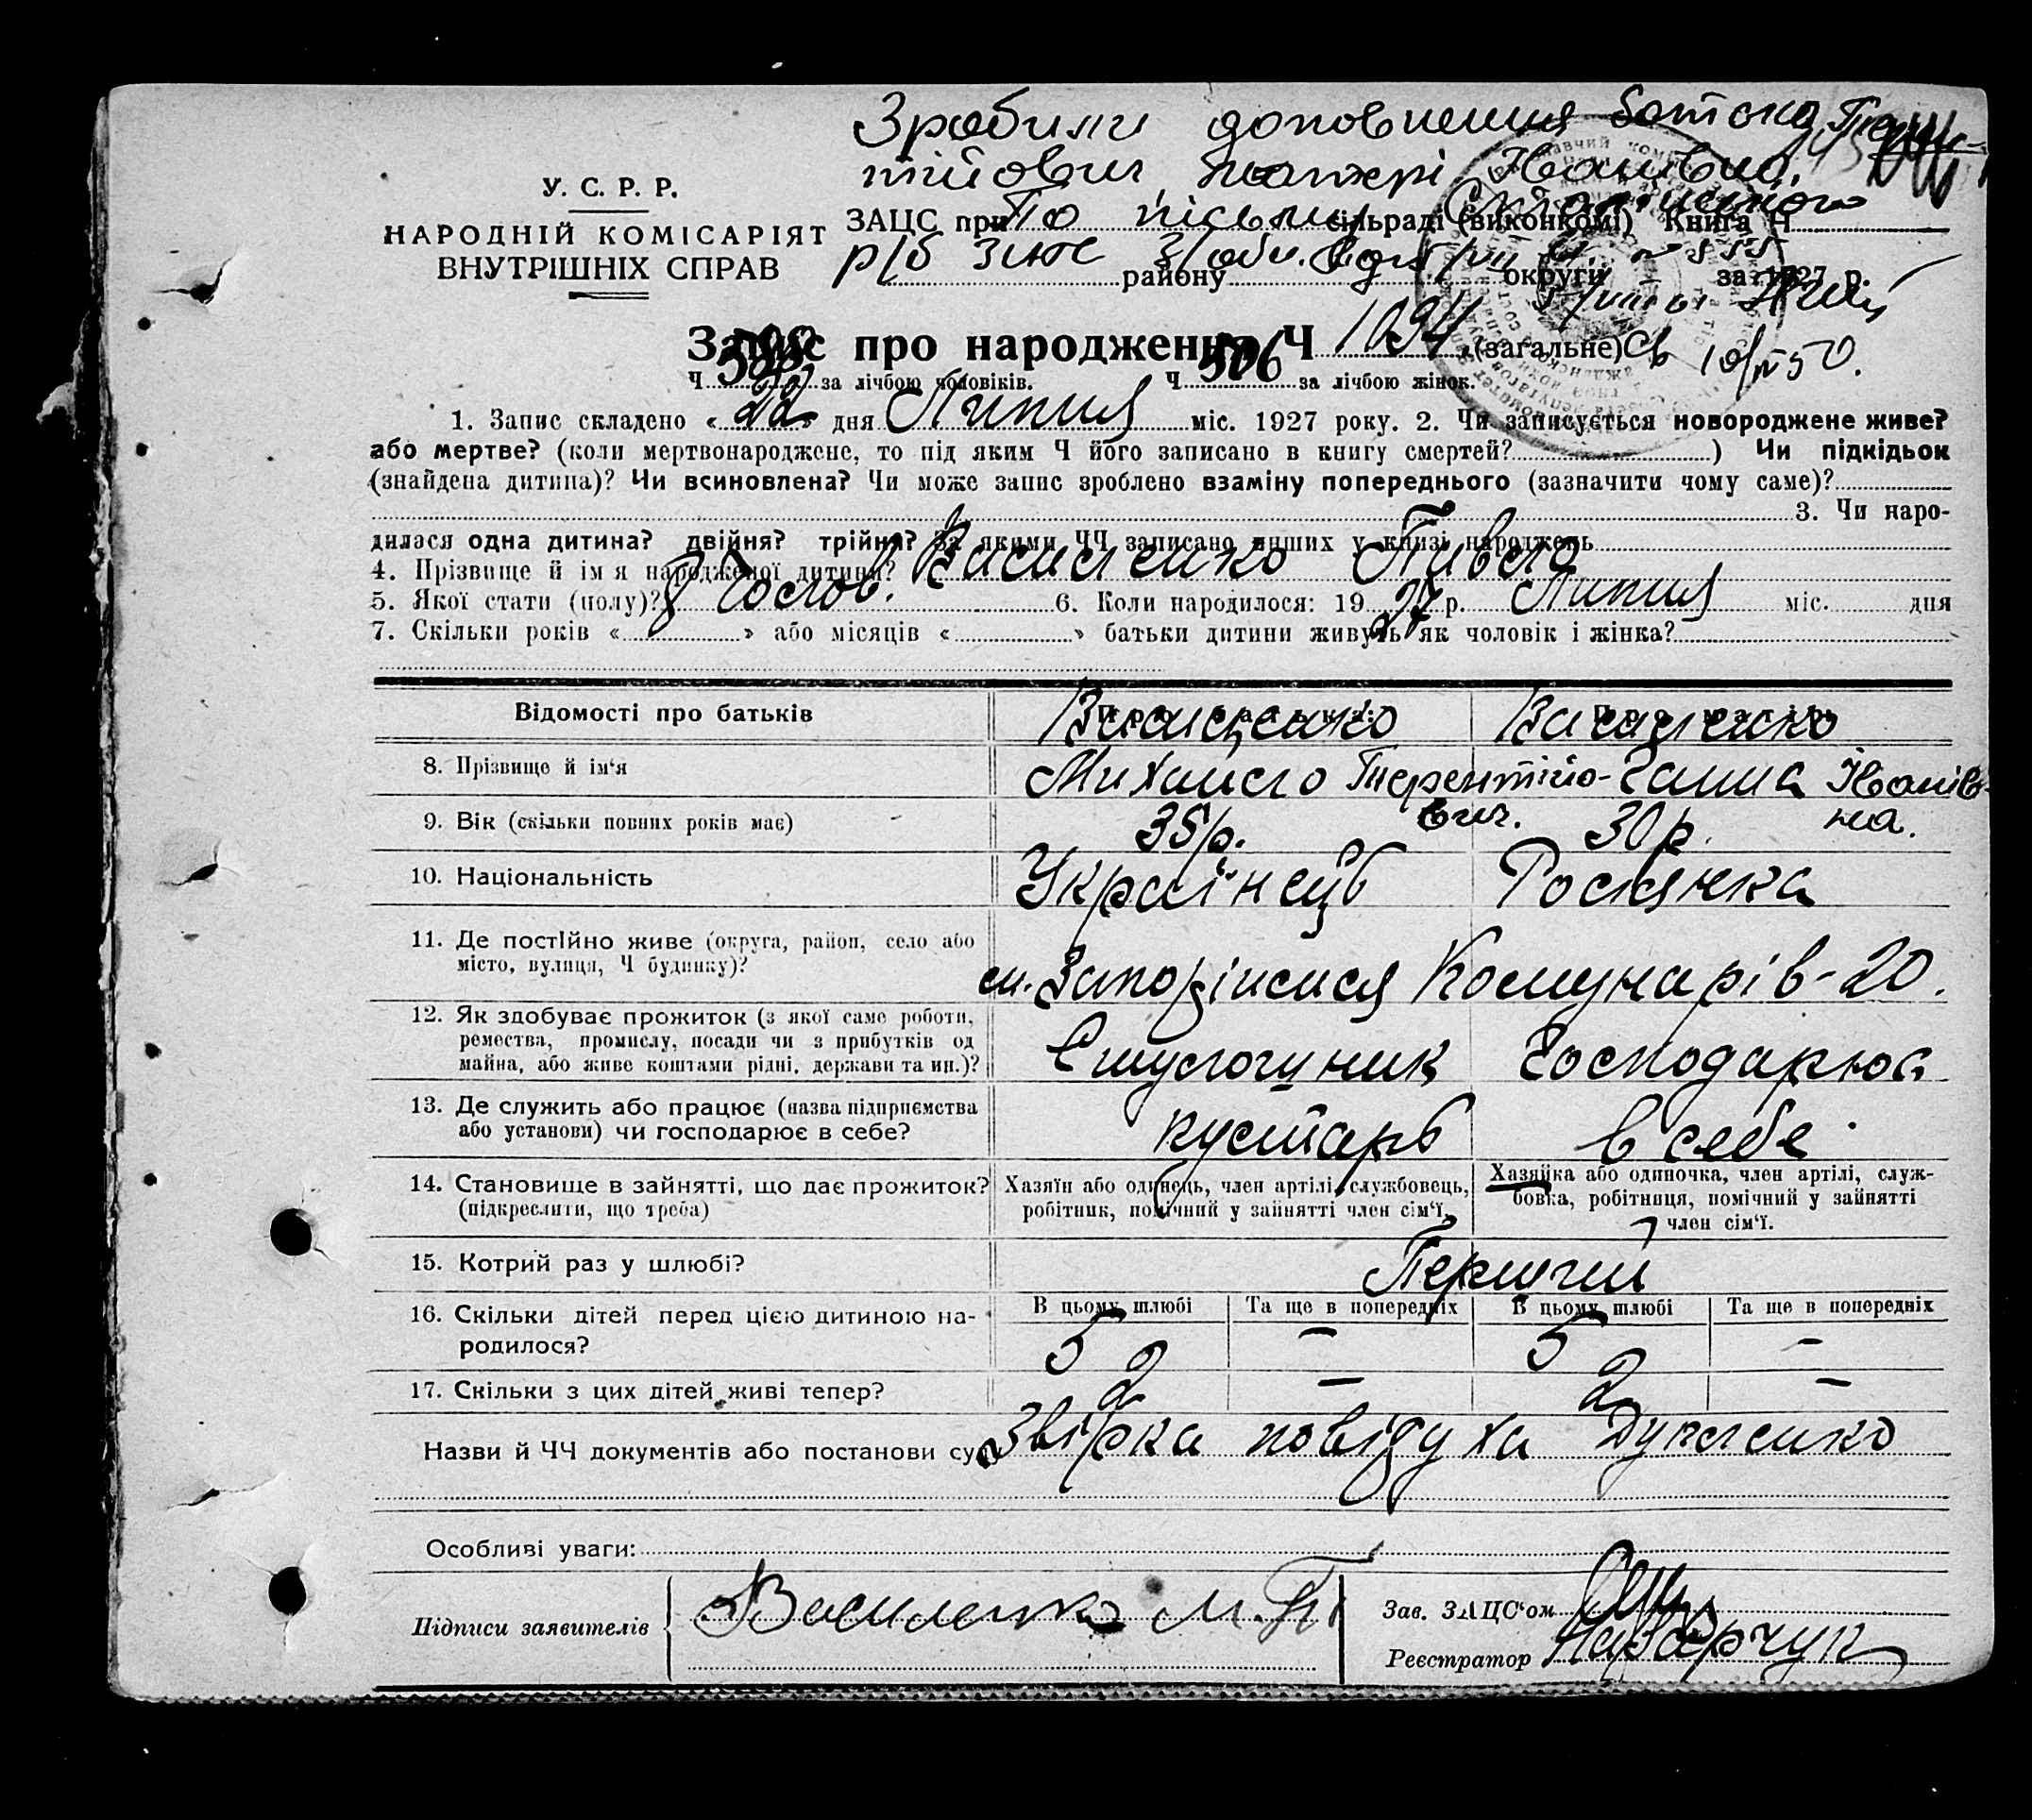 Зробили доповнення батско Терен-
тійович, матері Іванівна.
У. С. Р. Р.
НАРОДНІЙ КОМІСАРІЯТ
ВНУТРІШНІХ СПРАВ
ЗАЦС при сільраді (виконкомі) Книга Ч
району округи за 1927 р.
Запис про народження Ч 1094 (загальне)
Ч 588 за лічбою чоловіків. Ч 506 за лічбою жінок.
1. Запис складено «22» дня Липня міс. 1927 року. 2. Чи записується новороджене живе?
або мертве? (коли мертвонароджене, то під яким Ч його записано в книгу смертей?) Чи підкідьок
(знайдена дитина)? Чи всиновлена? Чи може запис зроблено взаміну попереднього (зазначити чому саме)?
3. Чи наро-
дилася одна дитина? двійня? трійня? За якими ЧЧ записано инших у книзі народжень
4. Прізвище й ім я народженої дитини? Василенко Павло
5. Якої стати (полу)? Чолов. 6. Коли народилося: 1927 р. Липня міс. 8 дня
7. Скільки років « » або місяців « » батьки дитини живуть як чоловік і жінка?
Відомості про батьків
Василенко Василенко
8. Прізвище й ім‘я Михайло Терентійо- Ганна Іванів-
9. Вік (скільки повних років має) 35 р. вич. 30 р. на.
10. Національність Українець Росіянка
11. Де постійно живе (округа, район, село або
місто, вулиця, Ч будинку)? м. Запоріжжя Комунарів-20.
12. Як здобуває прожиток (з якої саме роботи,
ремества, промислу, посади чи з прибутків од
майна, або живе коштами рідні, держави та ин.)? Господарює
13. Де служить або працює (назва підприємства
або установи) чи господарює в себе? кустарь в себе.
14. Становище в зайнятті, що дає прожиток?
(підкреслити, що треба)
Хазяїн або одинець, член артілі, службовець,
робітник, помічний у зайнятті член сім‘ї.
Хазяйка або одиночка, член артілі, служ-
бовка, робітниця, помічний у зайнятті
член сім‘ї.
15. Котрий раз у шлюбі? Перший
В цьому шлюбі Та ще в попередніх В цьому шлюбі Та ще в попередніх
16. Скільки дітей перед цією дитиною на-
родилося? 5 – 5 –
17. Скільки з цих дітей живі тепер? 2 – 2 –
Назви й ЧЧ документів або постанови суду
Особливі уваги:
Підписи заявителів Василенко М. Т.
Зав. ЗАЦС‘ом
Реєстратор Назарчук